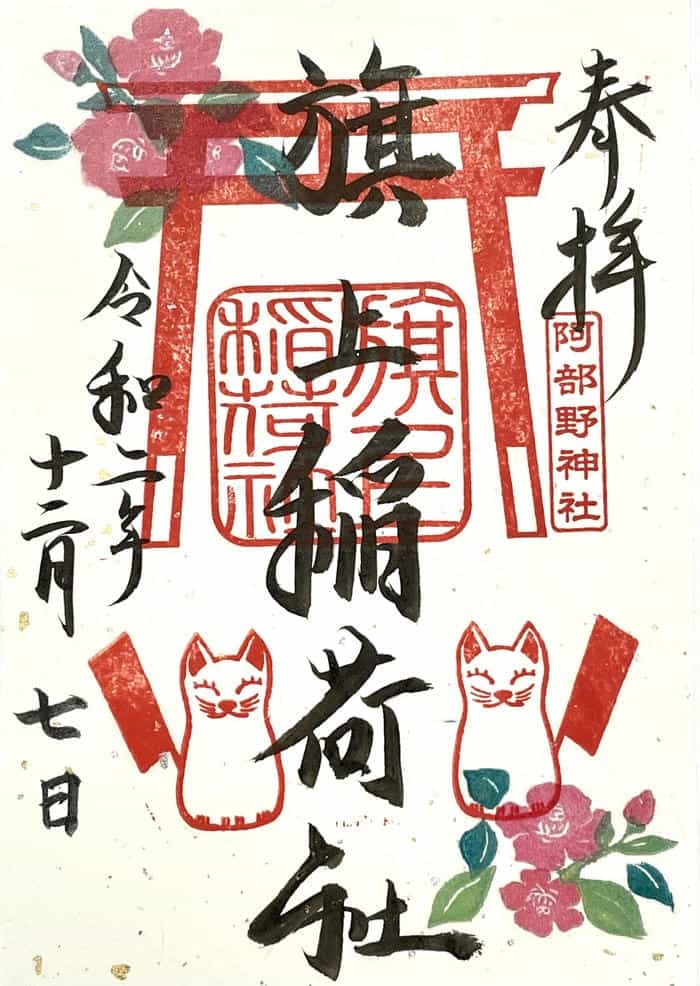 奉拝
阿部野神社
旗上稲荷社
旗上
稲荷社
令和二年
十二月
七日